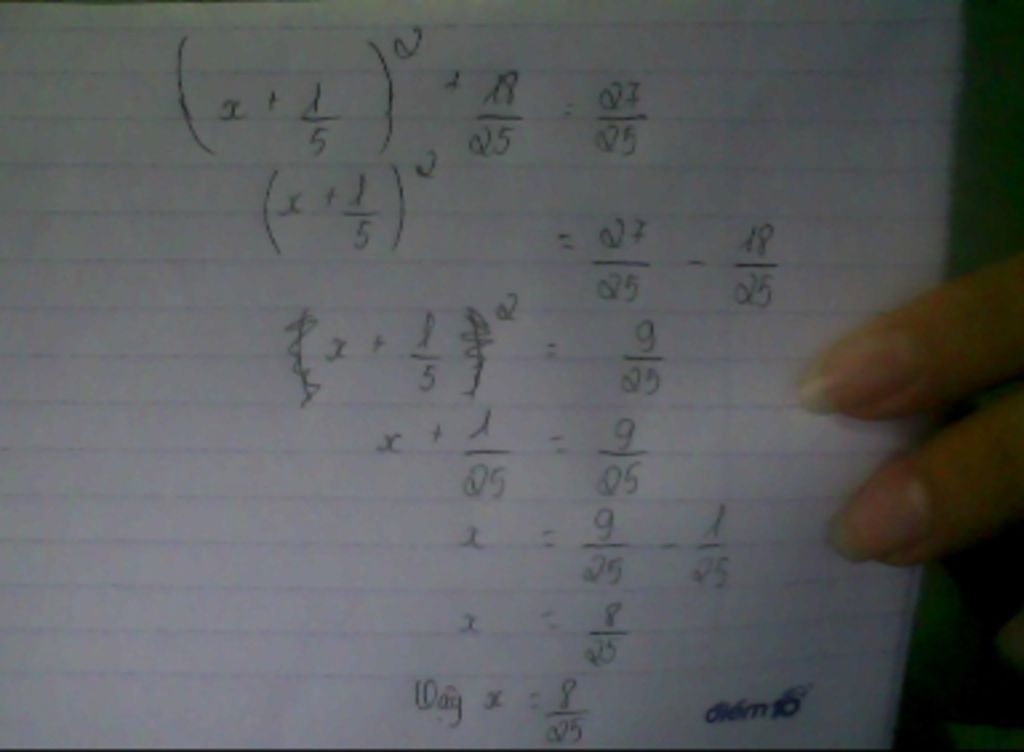 (x + 1/5)² + 18/25 = 27/25
(x + 1/5)²
= 27/25 - 18/25
x + 1/5 ² = 9/25
x + 1/25 = 9/25
x = 9/25 - 1/25
x = 8/25
Vậy x = 8/25
điểm 10